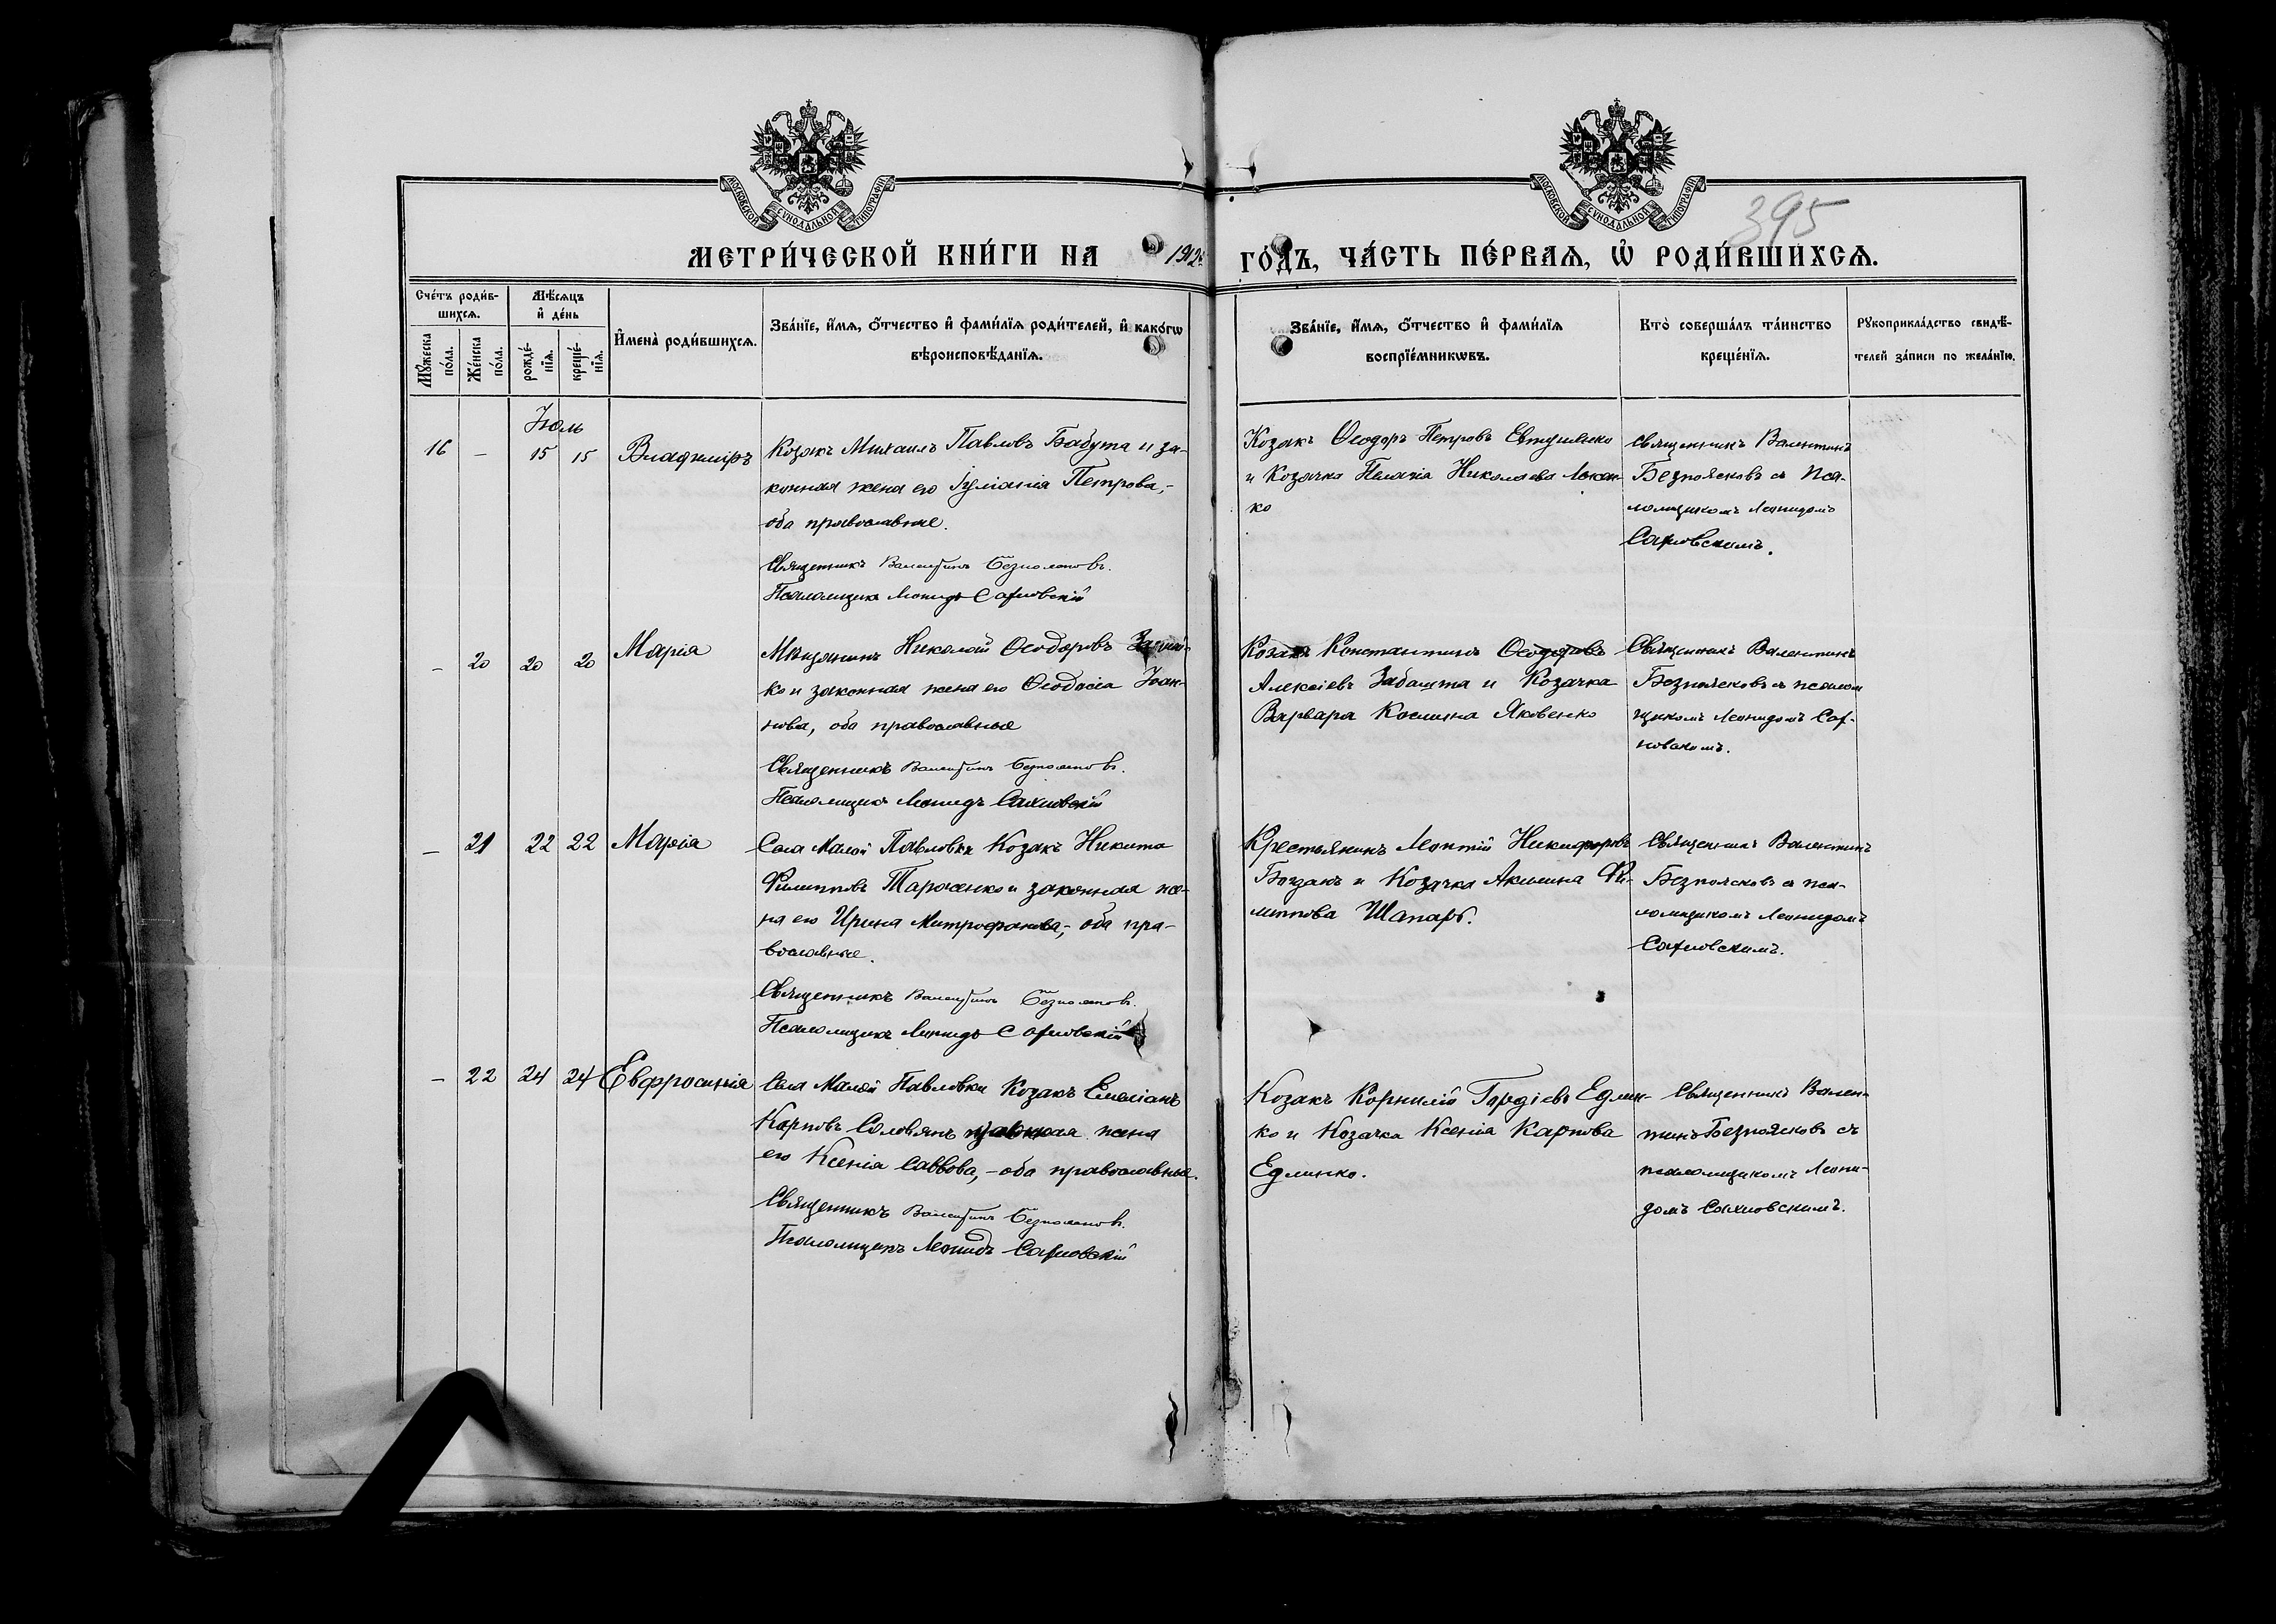 МОСКОВСКОЙ СУНОДАЛЬНОЙ ТИПОГРАФІИ
МОСКОВСКОЙ СУНОДАЛЬНОЙ ТИПОГРАФІИ
395
МЕТРИ́ЧЕСКОЙ КНИ́ГИ НА 1912 ГО́ДЪ, ЧА́СТЬ ПЕ́РВАѦ, Ѡ҆ РОДИ́ВШИХСѦ.
Сче́тъ роди́в-
шихсѧ.
Мꙋ́жеска по́ла.
Же́нска по́ла.
Мѣ́сѧцъ
и҆ де́нь
рожде́-
нїѧ.
креще́-
нїѧ.
И҆мена̀ роди́вшихсѧ.
Зва́нїе, и҆́мѧ, ѻ҆́тчество и҆ фами́лїѧ роди́телей, и҆ како́гѡ
вѣроисповѣ́данїѧ.
Зва́нїе, и҆́мѧ, ѻ҆́тчество и҆ фами́лїѧ
воспрїе́мникѡвъ.
Кто̀ соверша́лъ та́инство
креще́нїѧ.
Рꙋкоприкла́дство свидѣ́-
телей за́писи по жела́нїю.
Іюль
16 – 15 15 Владиміръ
Козакъ Михаилъ Павловъ Бабута и за-
конная жена его Іуліанія Петрова,-
оба православные.
Священникъ Валентинъ Безпоясковъ.
Псаломщикъ Леонидъ Сахновскій
Козакъ Ѳеодоръ Петровъ Евтушенко
и Козачка Пелагія Николаева
ко
Священникъ Валентинъ
Безпоясковъ съ Пса-
ломщикомъ Леонидомъ
Сахновскимъ.
– 20 20 20 Марія
Мѣщанинъ Николай Ѳеодоровъ
ко и законная жена его Ѳеодосія Іоан-
нова, оба православные
Священникъ Валентинъ Безпоясковъ.
Псаломщикъ Леонидъ Сахновскій
Козакъ Константинъ Ѳеодоровъ
Алексіевъ Забашта и Козачка
Варвара Космина Яковенко
Священникъ Валентинъ
Безпоясковъ съ псалом
щикомъ Леонидомъ Сах-
новскимъ.
– 21 22 22 Марія
Села Малой Павловки Козакъ Никита
Филипповъ Тарасенко и законная же-
на его Ирина Митрофанова,- оба пра-
вославные.
Священникъ Валентинъ Безпоясковъ.
Псаломщикъ Леонидъ Сахновскій
Крестьянинъ Леонтій Никифоровъ
и Козачка Акилина Фи-
липпова Шапарь.
Священникъ Валентинъ
Безпоясковъ съ пса-
ломщикомъ Леонидомъ
Сахновскимъ.
– 22 24 24 Евфросинія
Села Малой Павловки Козакъ Емеліанъ
Карповъ Соловянъ жена
его Ксенія Саввова,- оба православные.
Священникъ Валентинъ Безпоясковъ.
Псаломщикъ Леонидъ Сахновскій
Козакъ Корнилій Гордіевъ Едмен-
ко и Козачка Ксенія Карпова
Священникъ Вален-
тинъ Безпоясковъ съ
псаломщикомъ Леони-
домъ Сахновскимъ.